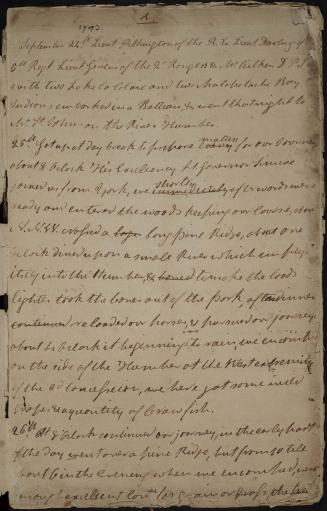 1793.
September 24th Lieut Pilkington of the R. E. Lieut Darling of
5th Regt Lieut Givins of the 2d Rangers & Mr Aitkin D P S
with two
Indians, embarked in a Batteau, & went that night to
Mr St John on the River Humber.
25th Got up at day break to prepare matters for our Journey
about 8 oClock His Excellency Lt Governor Simcoe
joined us from York, we shortly afterwards were
ready and entered the woods keeping our Course
N. N. W. crossed a long pine Ridge, about one
oClock dined upon a small River which emptys
itself into the Humber, & to make the loads
lighter took the bones out of the Pork, after dinner
continued reloaded our horses, & pursued our journey
about 4 oClock it beginning to rain, we encamped
on the side of the Humber at the West extremity
of the 3d concession, we here got some wild
Grapes & a quantity of Craw fish.
26th At 8 oClock continued our journey, in the early part
of the day went over a pine Ridge, but from 10 till
about 6 in the Evening when we encamped, went
through excellent land for grain or grass, the